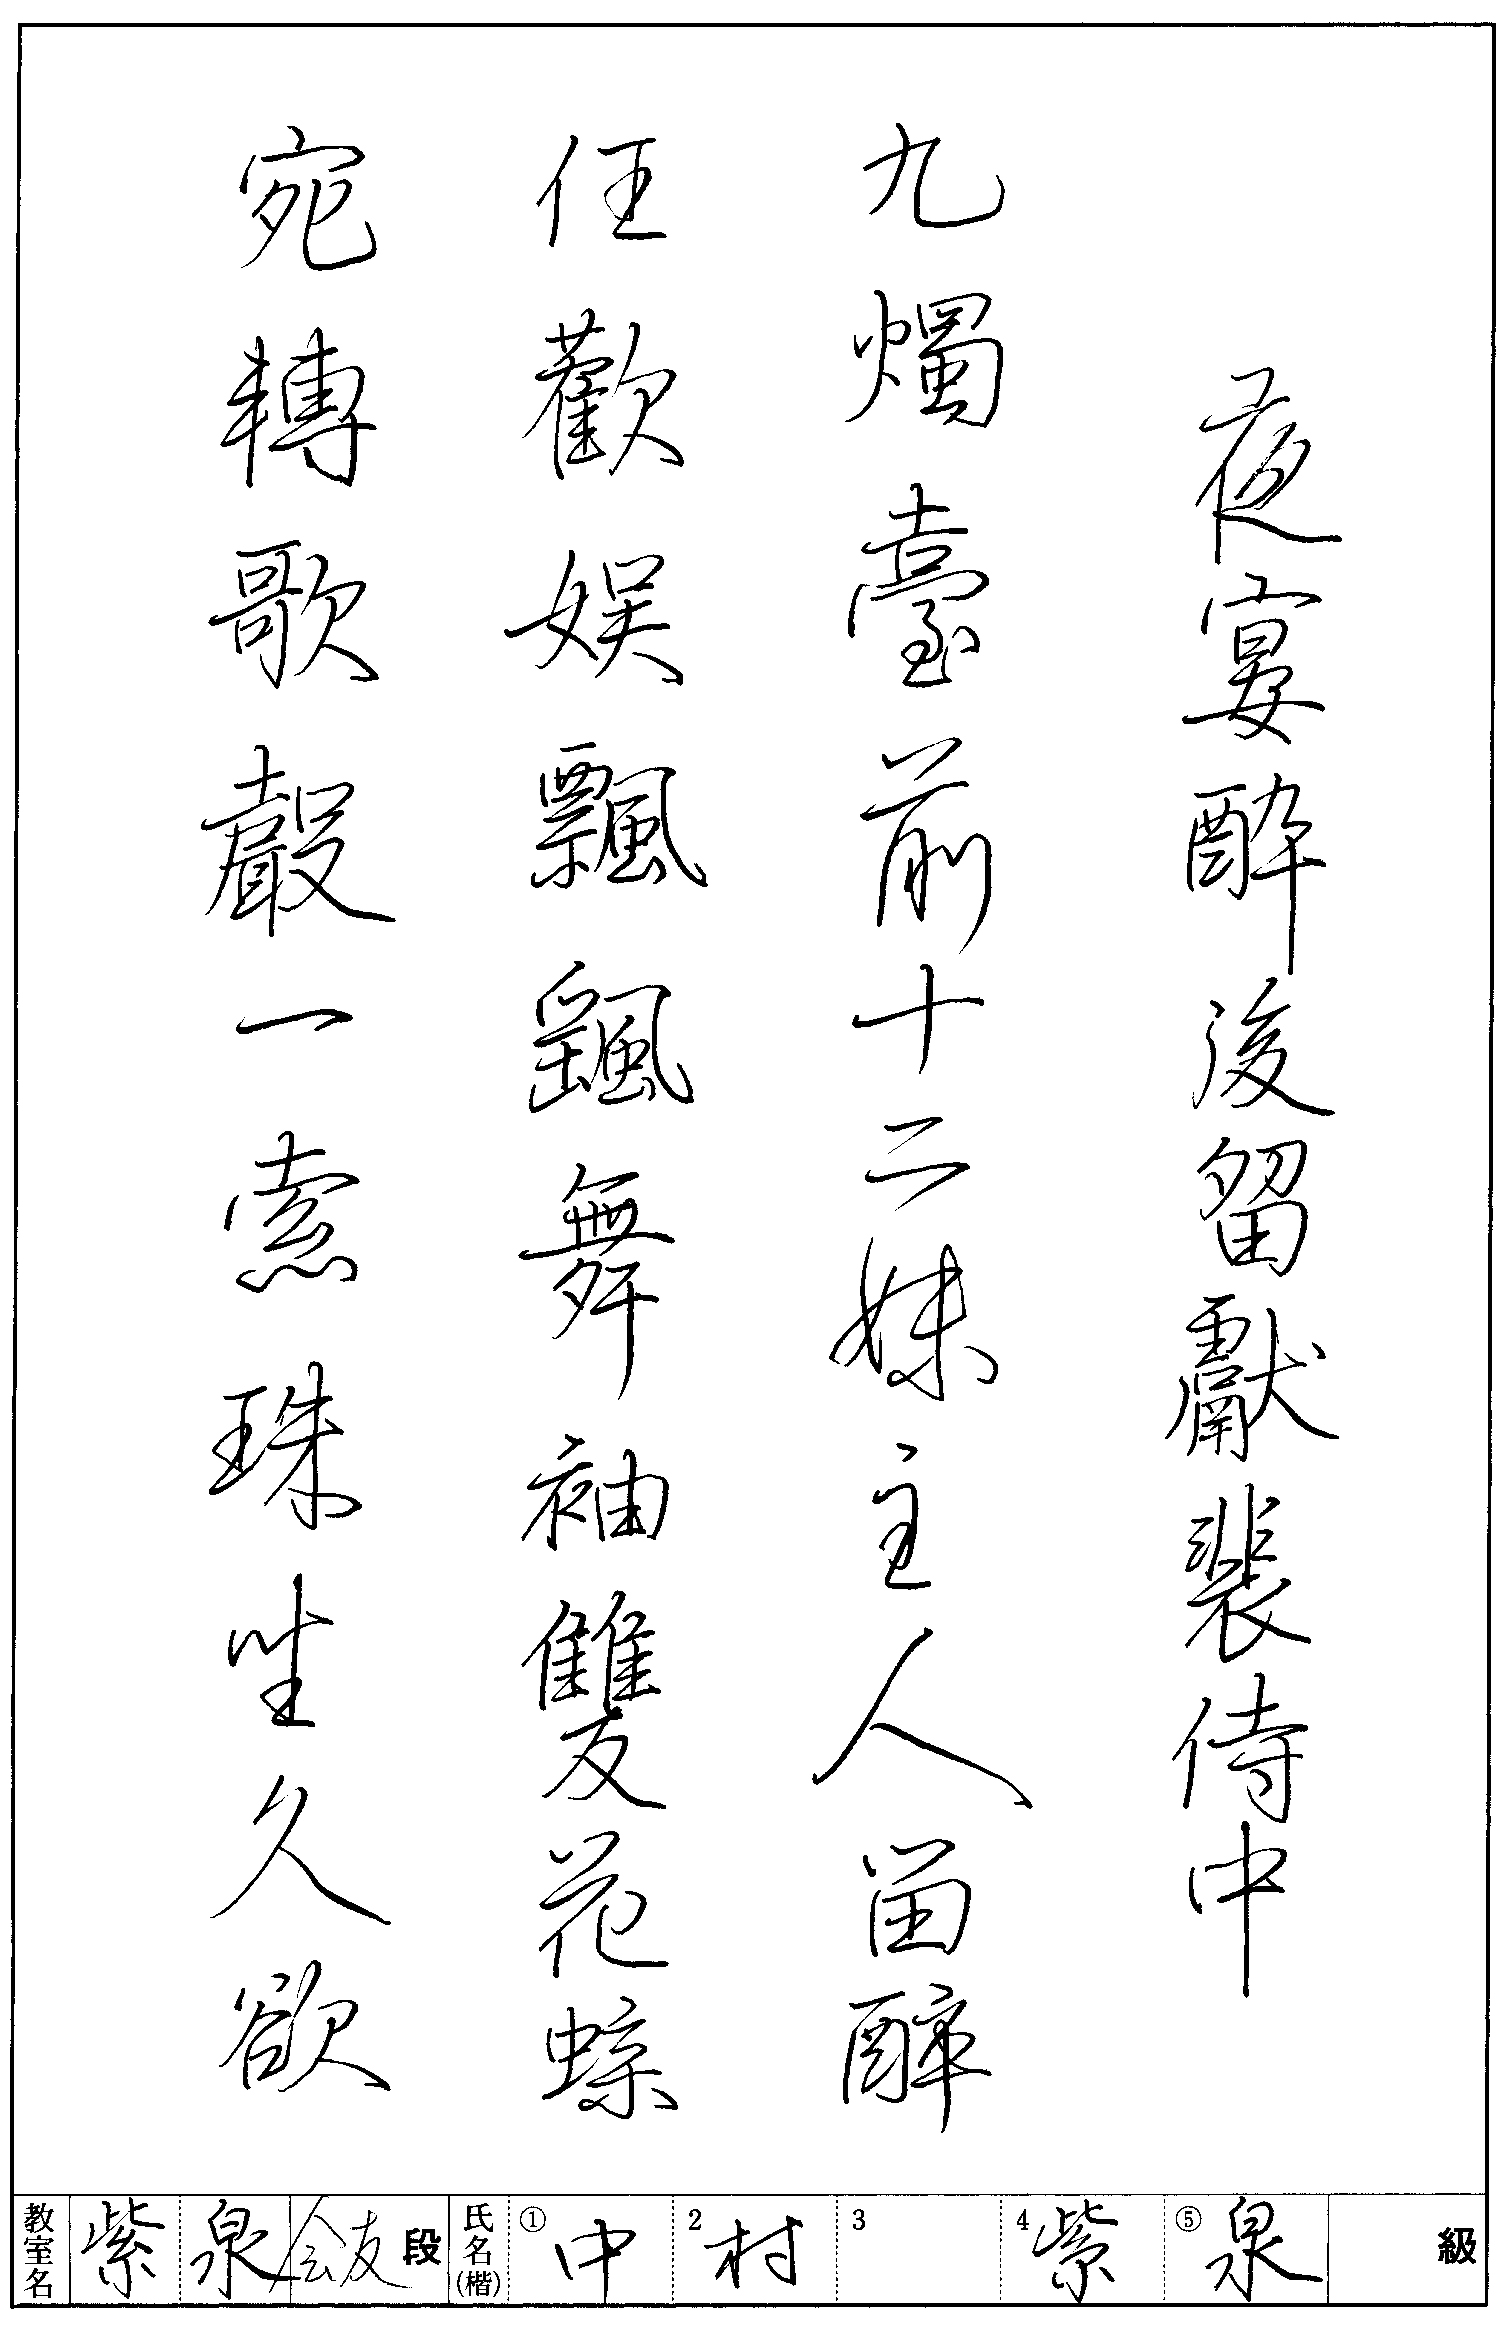 夜宴醉後留獻裴侍中
九燭臺前十二姝主人留醉
任歡娯飄颻舞袖雙花蝶
宛轉歌聲一索珠坐久欲
教室名 紫泉 会友 段 氏名(楷) ①中 2村 3 4紫 ⑤泉 級